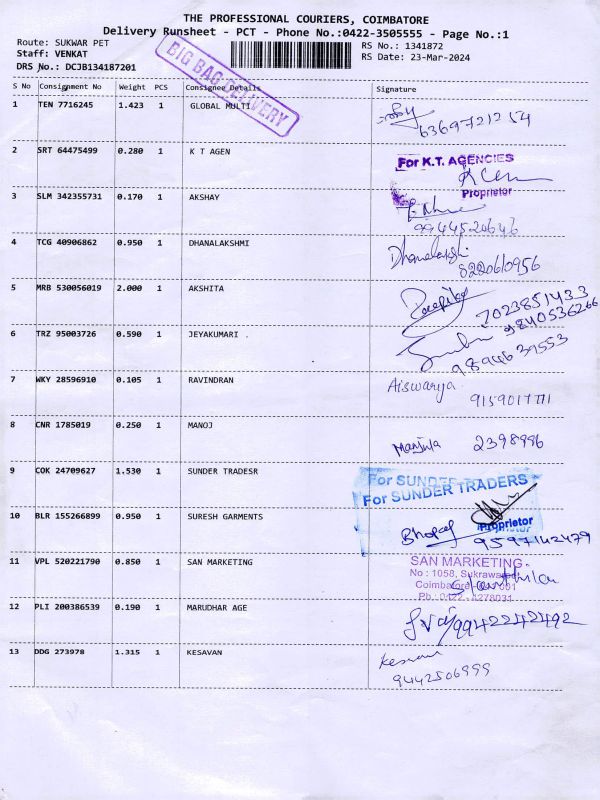 THE PROFESSIONAL COURIERS, COIMBATORE
Delivery Runsheet - PCT - Phone No.:0422-3505555 - Page No.:1
Route: SUKWAR PET
RS No.: 1341872
Staff: VENKAT
RS Date: 23-Mar-2024
DRS No.: DCJB134187201
BIG BAG DELIVERY
S No Consignment No Weight PCS Consignee Details Signature
1 TEN 7716245 1.423 1 GLOBAL MULTI
6369721254
2 SRT 64475499 0.280 1 K T AGEN
For K.T. AGENCIES
Proprietor
3 SLM 342355731 0.170 1 AKSHAY
9944520646
4 TCG 40906862 0.950 1 DHANALAKSHMI
Dhanalakshi
8220610956
5 MRB 530056019 2.000 1 AKSHITA
7023851433
9840536266
6 TRZ 95003726 0.590 1 JEYAKUMARI .
9894639553
7 WKY 28596910 0.105 1 RAVINDRAN Aiswarya.
9159017771
8 CNR 1785019 0.250 1 MANOJ
Manjula 2398996
9 COK 24709627 1.530 1 SUNDER TRADESR
For SUNDER TRADERS
For SUNDER TRADERS
Proprietor
10 BLR 155266899 0.950 1 SURESH GARMENTS
9597142479
11 VPL 520221790 0.850 1 SAN MARKETING
SAN MARKETING
No : 1058, Sukrawa
Coimbatore 001
Ph : 0422 - 4278031
12 PLI 200386539 0.190 1 MARUDHAR AGE
9942242492
13 DDG 273978 1.315 1 KESAVAN
Kesavan
9442506999